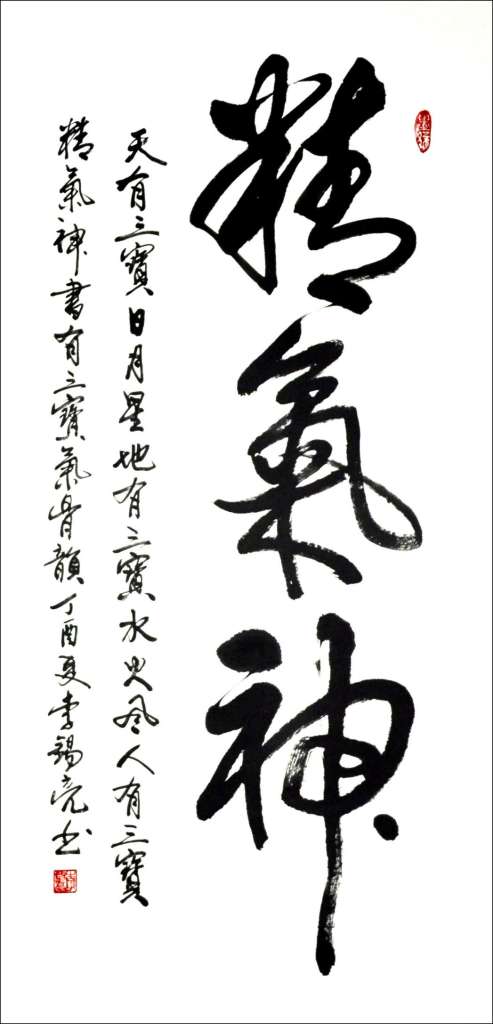 精氣神
天有三寶日月星地有三寶水火風人有三寶
精氣神書有三寶氣骨韻丁酉夏李錫亮書